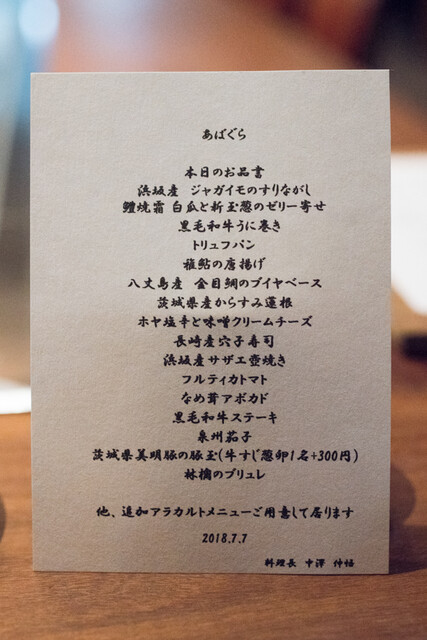 あばぐら
本日のお品書
浜坂産 ジャガイモのすりながし
鱧焼霜 白瓜と新玉葱のゼリー寄せ
黒毛和牛うに巻き
トリュフパン
稚鮎の唐揚げ
八丈島産 金目鯛のブイヤベース
茨城県産からすみ蓮根
ホヤ塩辛と味噌クリームチーズ
長崎産穴子寿司
浜坂産サザエ壺焼き
フルティカトマト
なめ茸アボカド
黒毛和牛ステーキ
泉州茄子
茨城県美明豚の豚玉(牛すじ葱卵1名+300円)
林檎のブリュレ
他、追加アラカルトメニューご用意して居ります
2018.7.7
料理長 中澤 仲悟